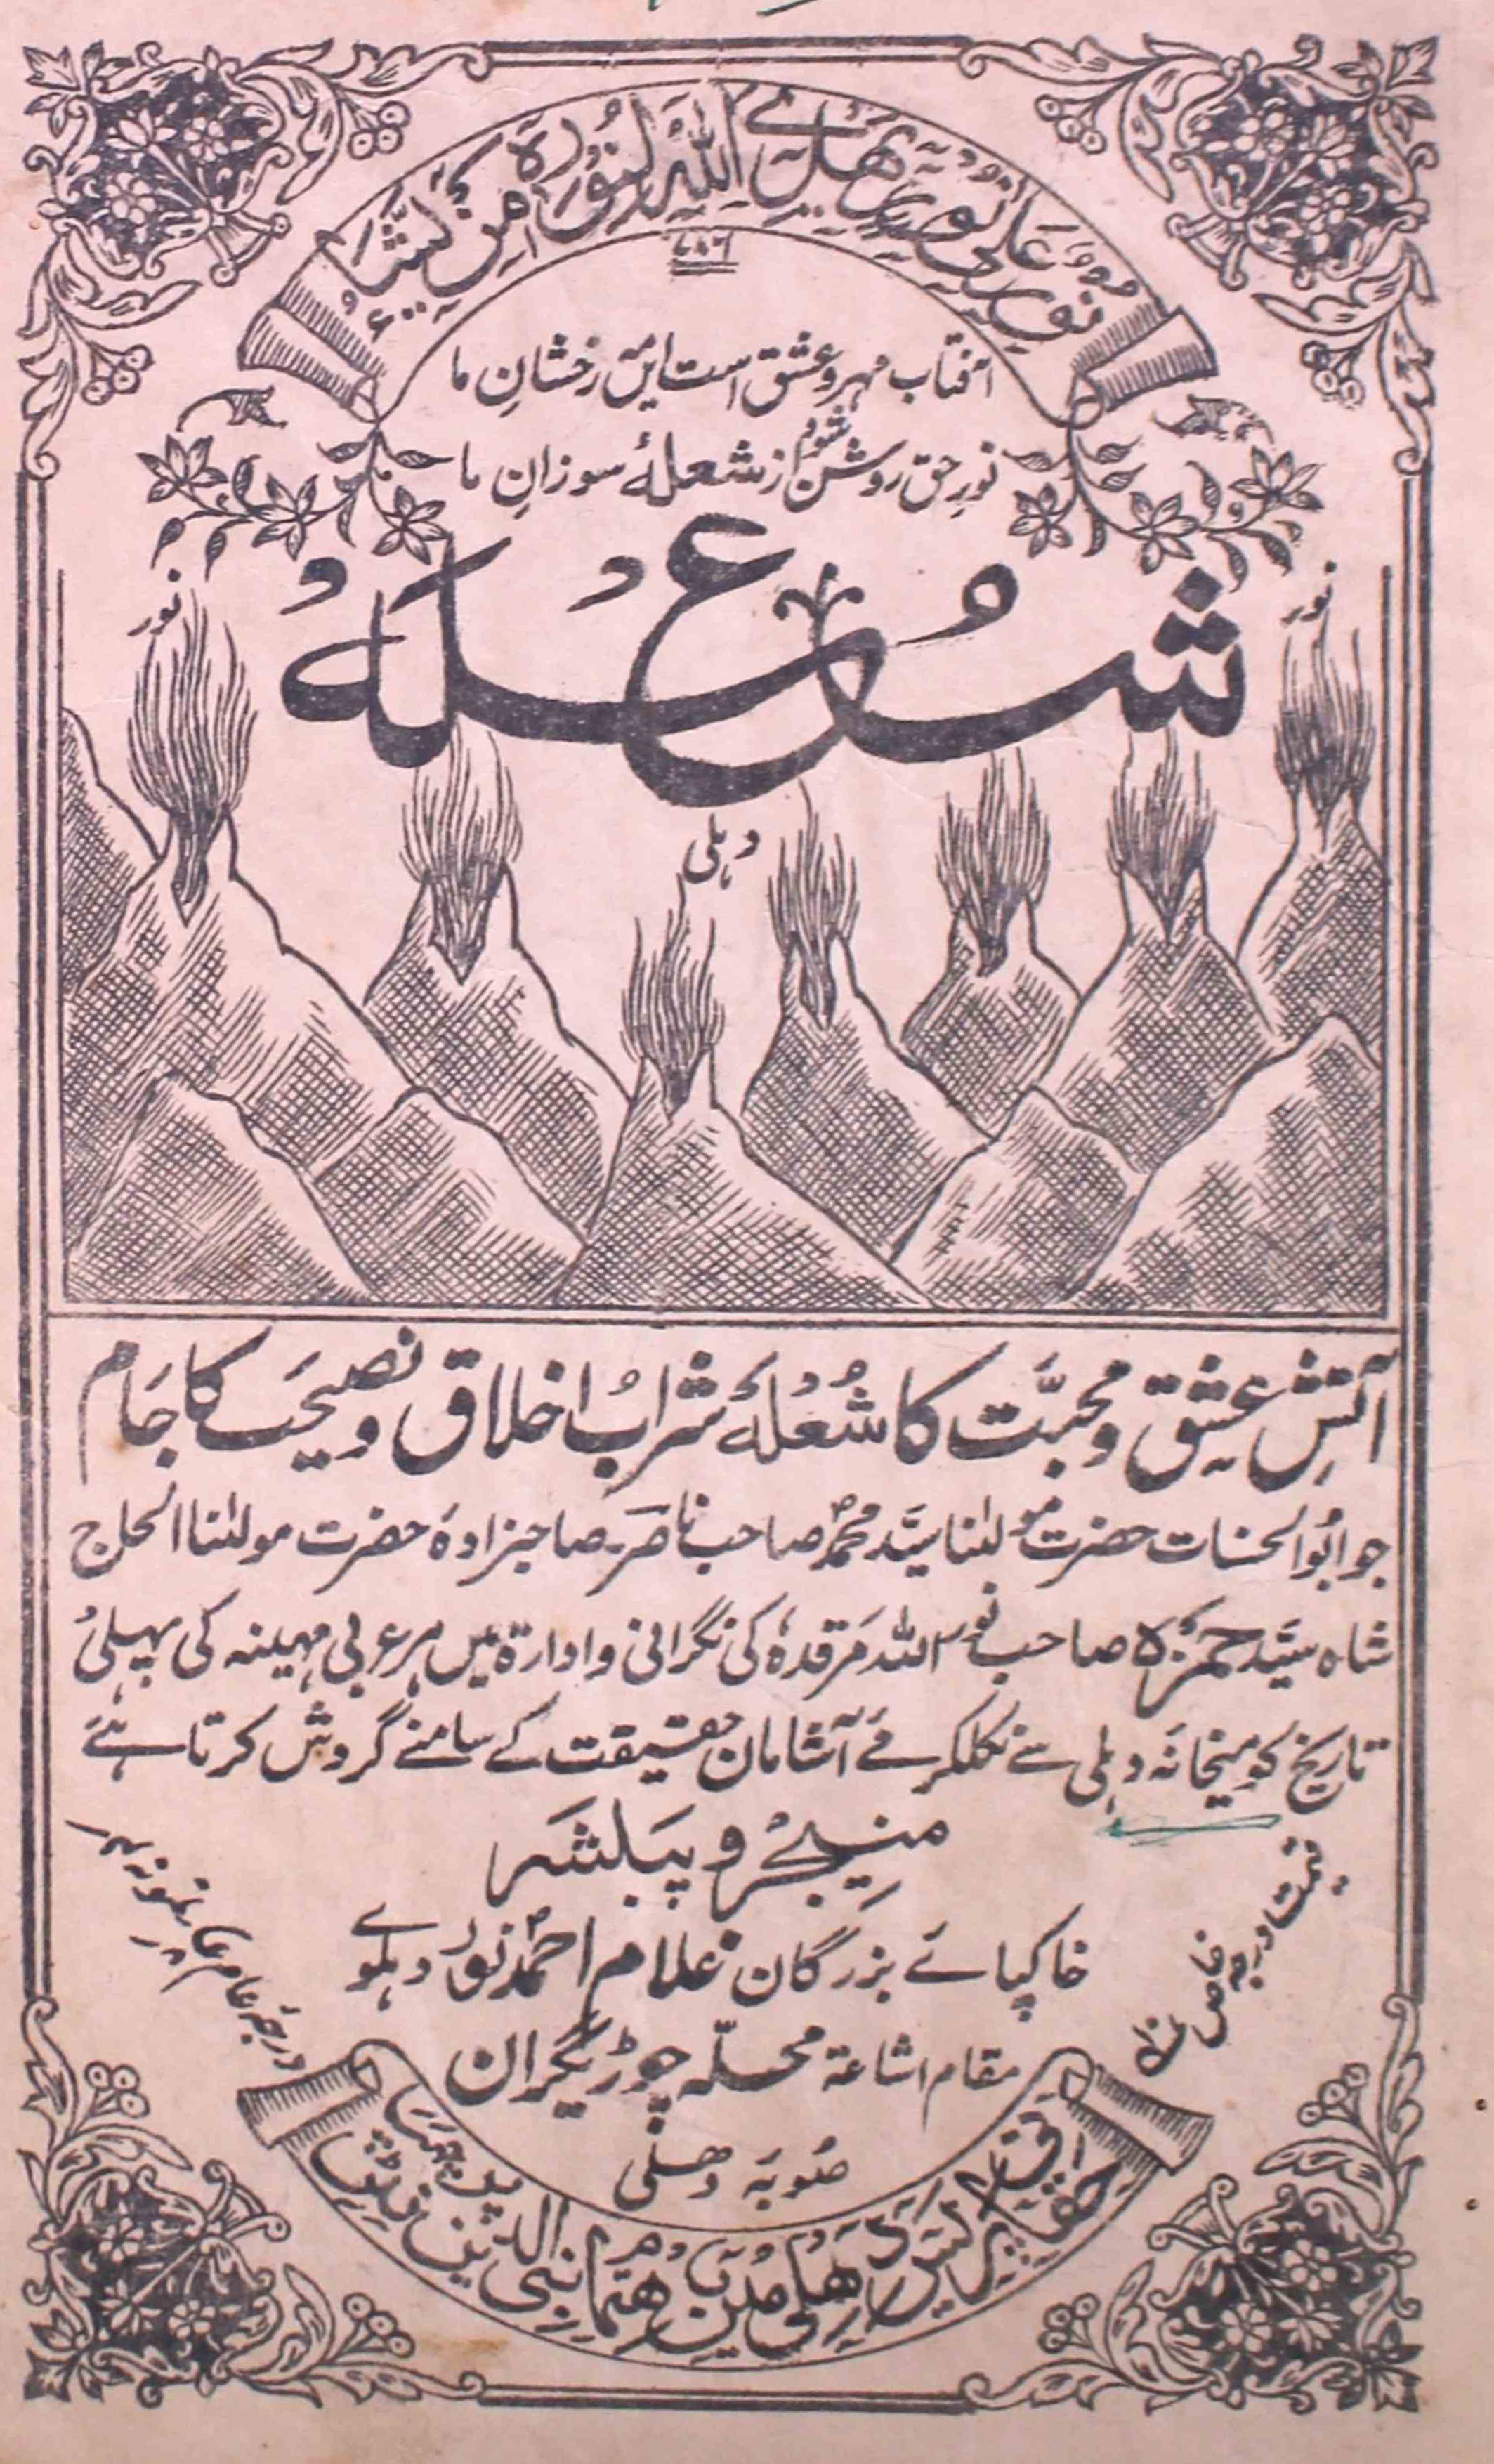 نُوْرٌ عَلٰی نُوْرٍ یَهْدِے اللّٰهُ لِنُوْرِهٖ مَنْ یَّشَآءُ
۷۸۶
آفتاب مہر و عشق است ایں رخشانِ ما
نورِ حق روشن شود از شعلۂ سوزانِ ما
شُعلہُ
نور
نور
دہلی
آتشِ عِشق و محبَّت کا شُعْلۂ شرابُ اخلاق و نصیحَت کا جَام
جو ابُو الحسنات حضرت مولٰنا سیَّد محمّد صاحب ناصَر صاحبزادہ حضرت مولٰنا الحاج
شاہ سیَّد حمزہ صاحب نور اللہ مَرقدہ کی نگرانی و ادارۃ میں ہر عربی مہینہ کی پہلی
تاریخ کو میخانہ دہلی سے نکلکر مے آشامان حقیقت کے سامنے گردش کرتا ہے
منیجر و پبلشَر
خاکپائے بزرگان غلام احمد نور دہلوے
مقام اشاعۃ محلّہ چوڑیگران
صُوبَہ دھلی
قیمت درجہ خاص
درجہ عام نمونہ
پریس دھلی مین باھتمام الدین